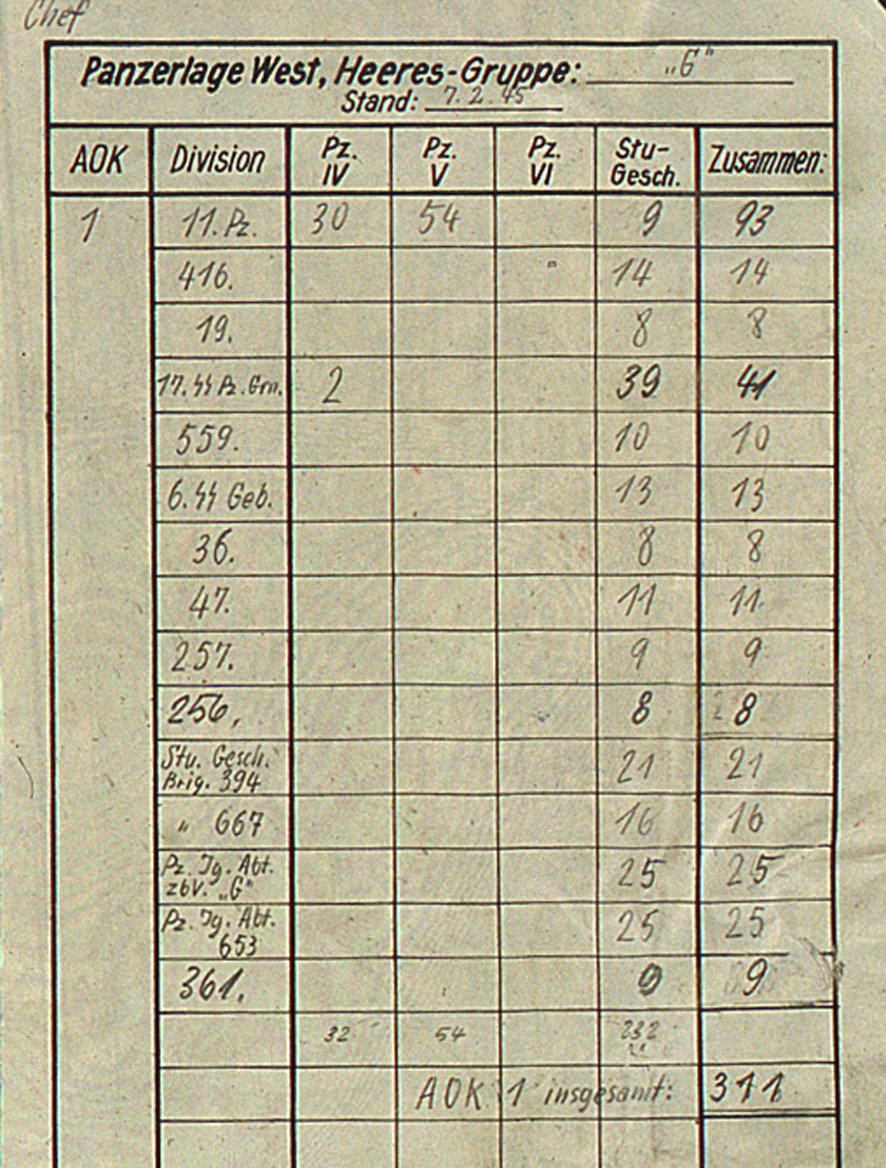 Chef
Panzerlage West, Heeres-Gruppe: „G“
Stand: 7. 2. 45
AOK Division Pz. IV Pz. V Pz. VI Stu-Gesch. Zusammen:
1 11. Pz. 30 54 9 93
416. 14 14
19. 8 8
17. SS Pz. Grn. 2 39 41
559. 10 10
6. SS Geb. 13 13
36. 8 8
47. 11 11
257. 9 9
256. 8 8
Stu. Gesch. Brig. 394 21 21
„ 667 16 16
Pz. Jg. Abt. zbV. „G“ 25 25
Pz. Jg. Abt. 653 25 25
361. 9 9
32 54 232
AOK 1 insgesamt: 311